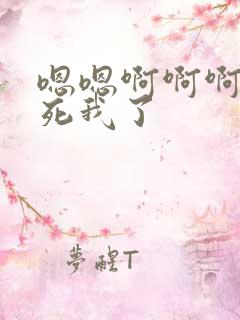 嗯嗯啊啊啊
死我了
夢醒T